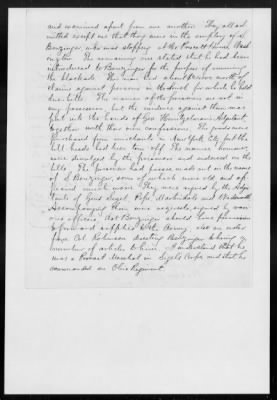 and examined apart from one another. They all ad
mitted except one that they were in the employ of S
Benzinger who was stopping at the Prescott House, Wash
ington. The remaining one stated that he had been
introduced to Benzinger for the purpose of running
the blockade. This man had about worth of
claims against persons in the South for which he held
due bills. The names of the prisoners are not in
my possession, but the evidence against them was
put into the hands of Geo Adjutant,
together with their own confessions. The goods were
purchased from merchants in New York City but the
bill heads had been torn off. The names however
were divulged by the prisoners and endorsed on the
bills. The prisoners had passes made out in the name
of S Benzinger, some of which were old, and ap
peared much worn. They were signed by the Adju
tants of Genls Sigel, Pope, Martindale and Wadsworth
Accompanying them were requests, signed by vari
ous officers that Benzinger should have permission
to forward supplies to the Army, also an order
from Col Robinson directing Benzinger to bring a
number of articles to him. I understand that he
was a Provost Marshal in Sigels Corps and that he
commanded an Ohio Regiment.